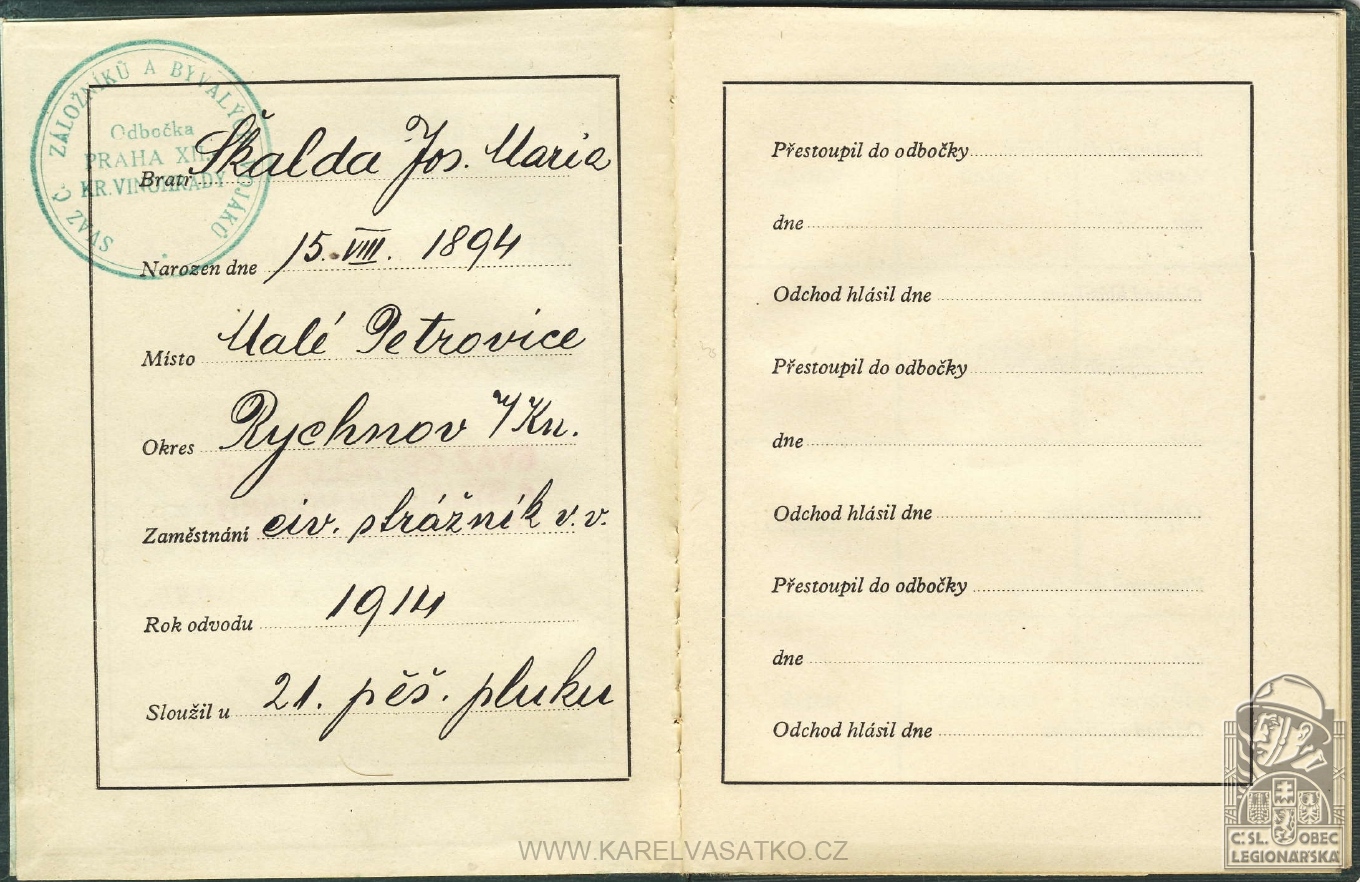 SVAZ Č. ZÁLOŽNÍKŮ A BÝVALÝCH VOJÁKŮ
Odbočka
PRAHA XII.
KR. VINOHRADY
Bratr Škalda Jos. Maria
Narozen dne 15. VIII. 1894
Místo Malé Petrovice
Okres Rychnov n/Kn.
Zaměstnání civ. strážník v. v.
Rok odvodu 1914
Sloužil u 21. pěš. pluku
Přestoupil do odbočky
dne
Odchod hlásil dne
Přestoupil do odbočky
dne
Odchod hlásil dne
Přestoupil do odbočky
dne
Odchod hlásil dne
Č.SL. OBEC
LEGIONÁŘSKÁ
WWW.KARELVASATKO.CZ